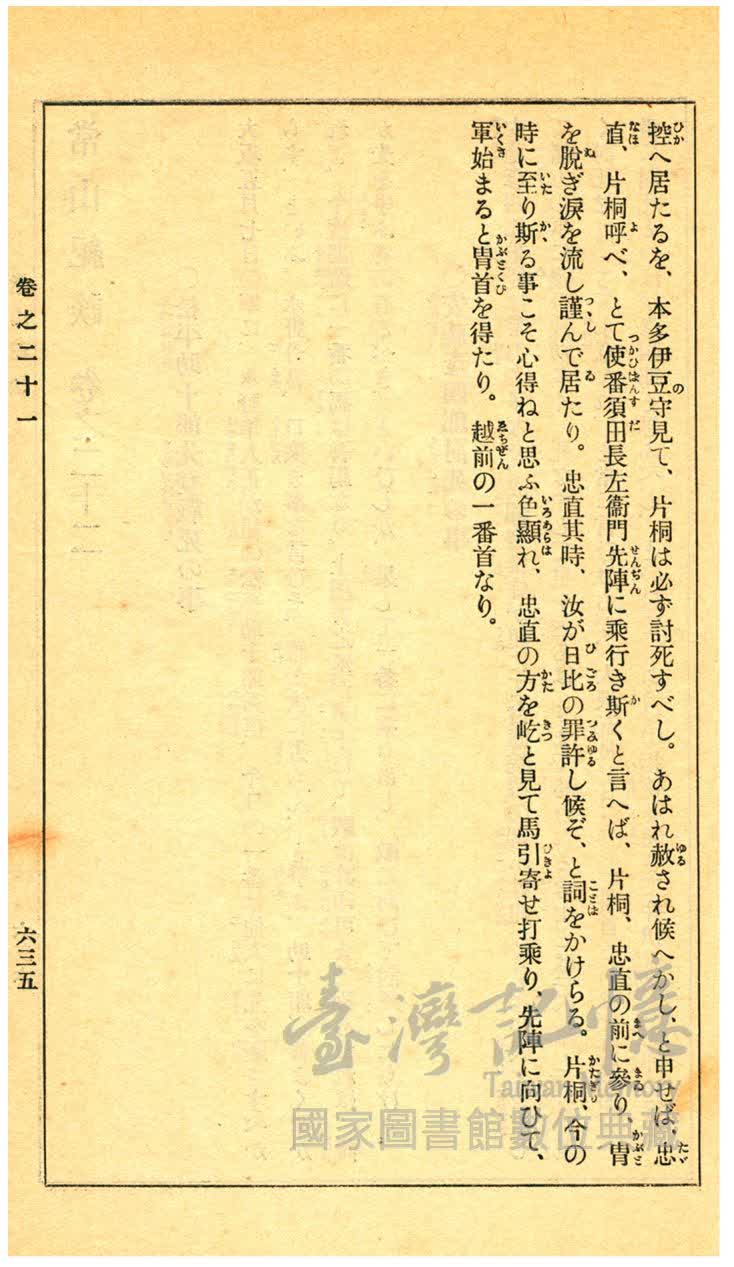 控へ居たるを、本多伊豆守見て、片桐は必ず討死すべし。あはれ赦され候へかし、と申せば、忠
直、片桐呼べ、とて使番須田長左衞門先陣に乘行き斯くと言へば、片桐、忠直の前に參り、冑
を脫ぎ淚を流し謹んで居たり。忠直其時、汝が日比の罪許し候ぞ、と詞をかけらる。片桐、今の
時に至り斯る事こそ心得ねと思ふ色顯れ、忠直の方を屹と見て馬引寄せ打乘り、先陣に向ひて、
軍始まると冑首を得たり。越前の一番首なり。
卷之二十一
六三五
臺灣記憶
Taiwan Memory
國家圖書館數位典藏